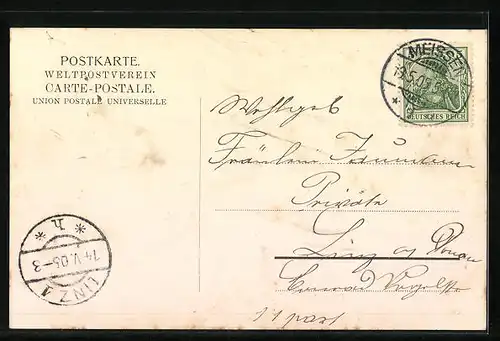 POSTKARTE.
WELTPOSTVEREIN
CARTE-POSTALE.
UNION POSTALE UNIVERSELLE
MEISSEN
DEUTSCHES REICH
Wohlgeb
Fräulein
Private
Linz a Donau
LINZ 1
14 V. 05-3